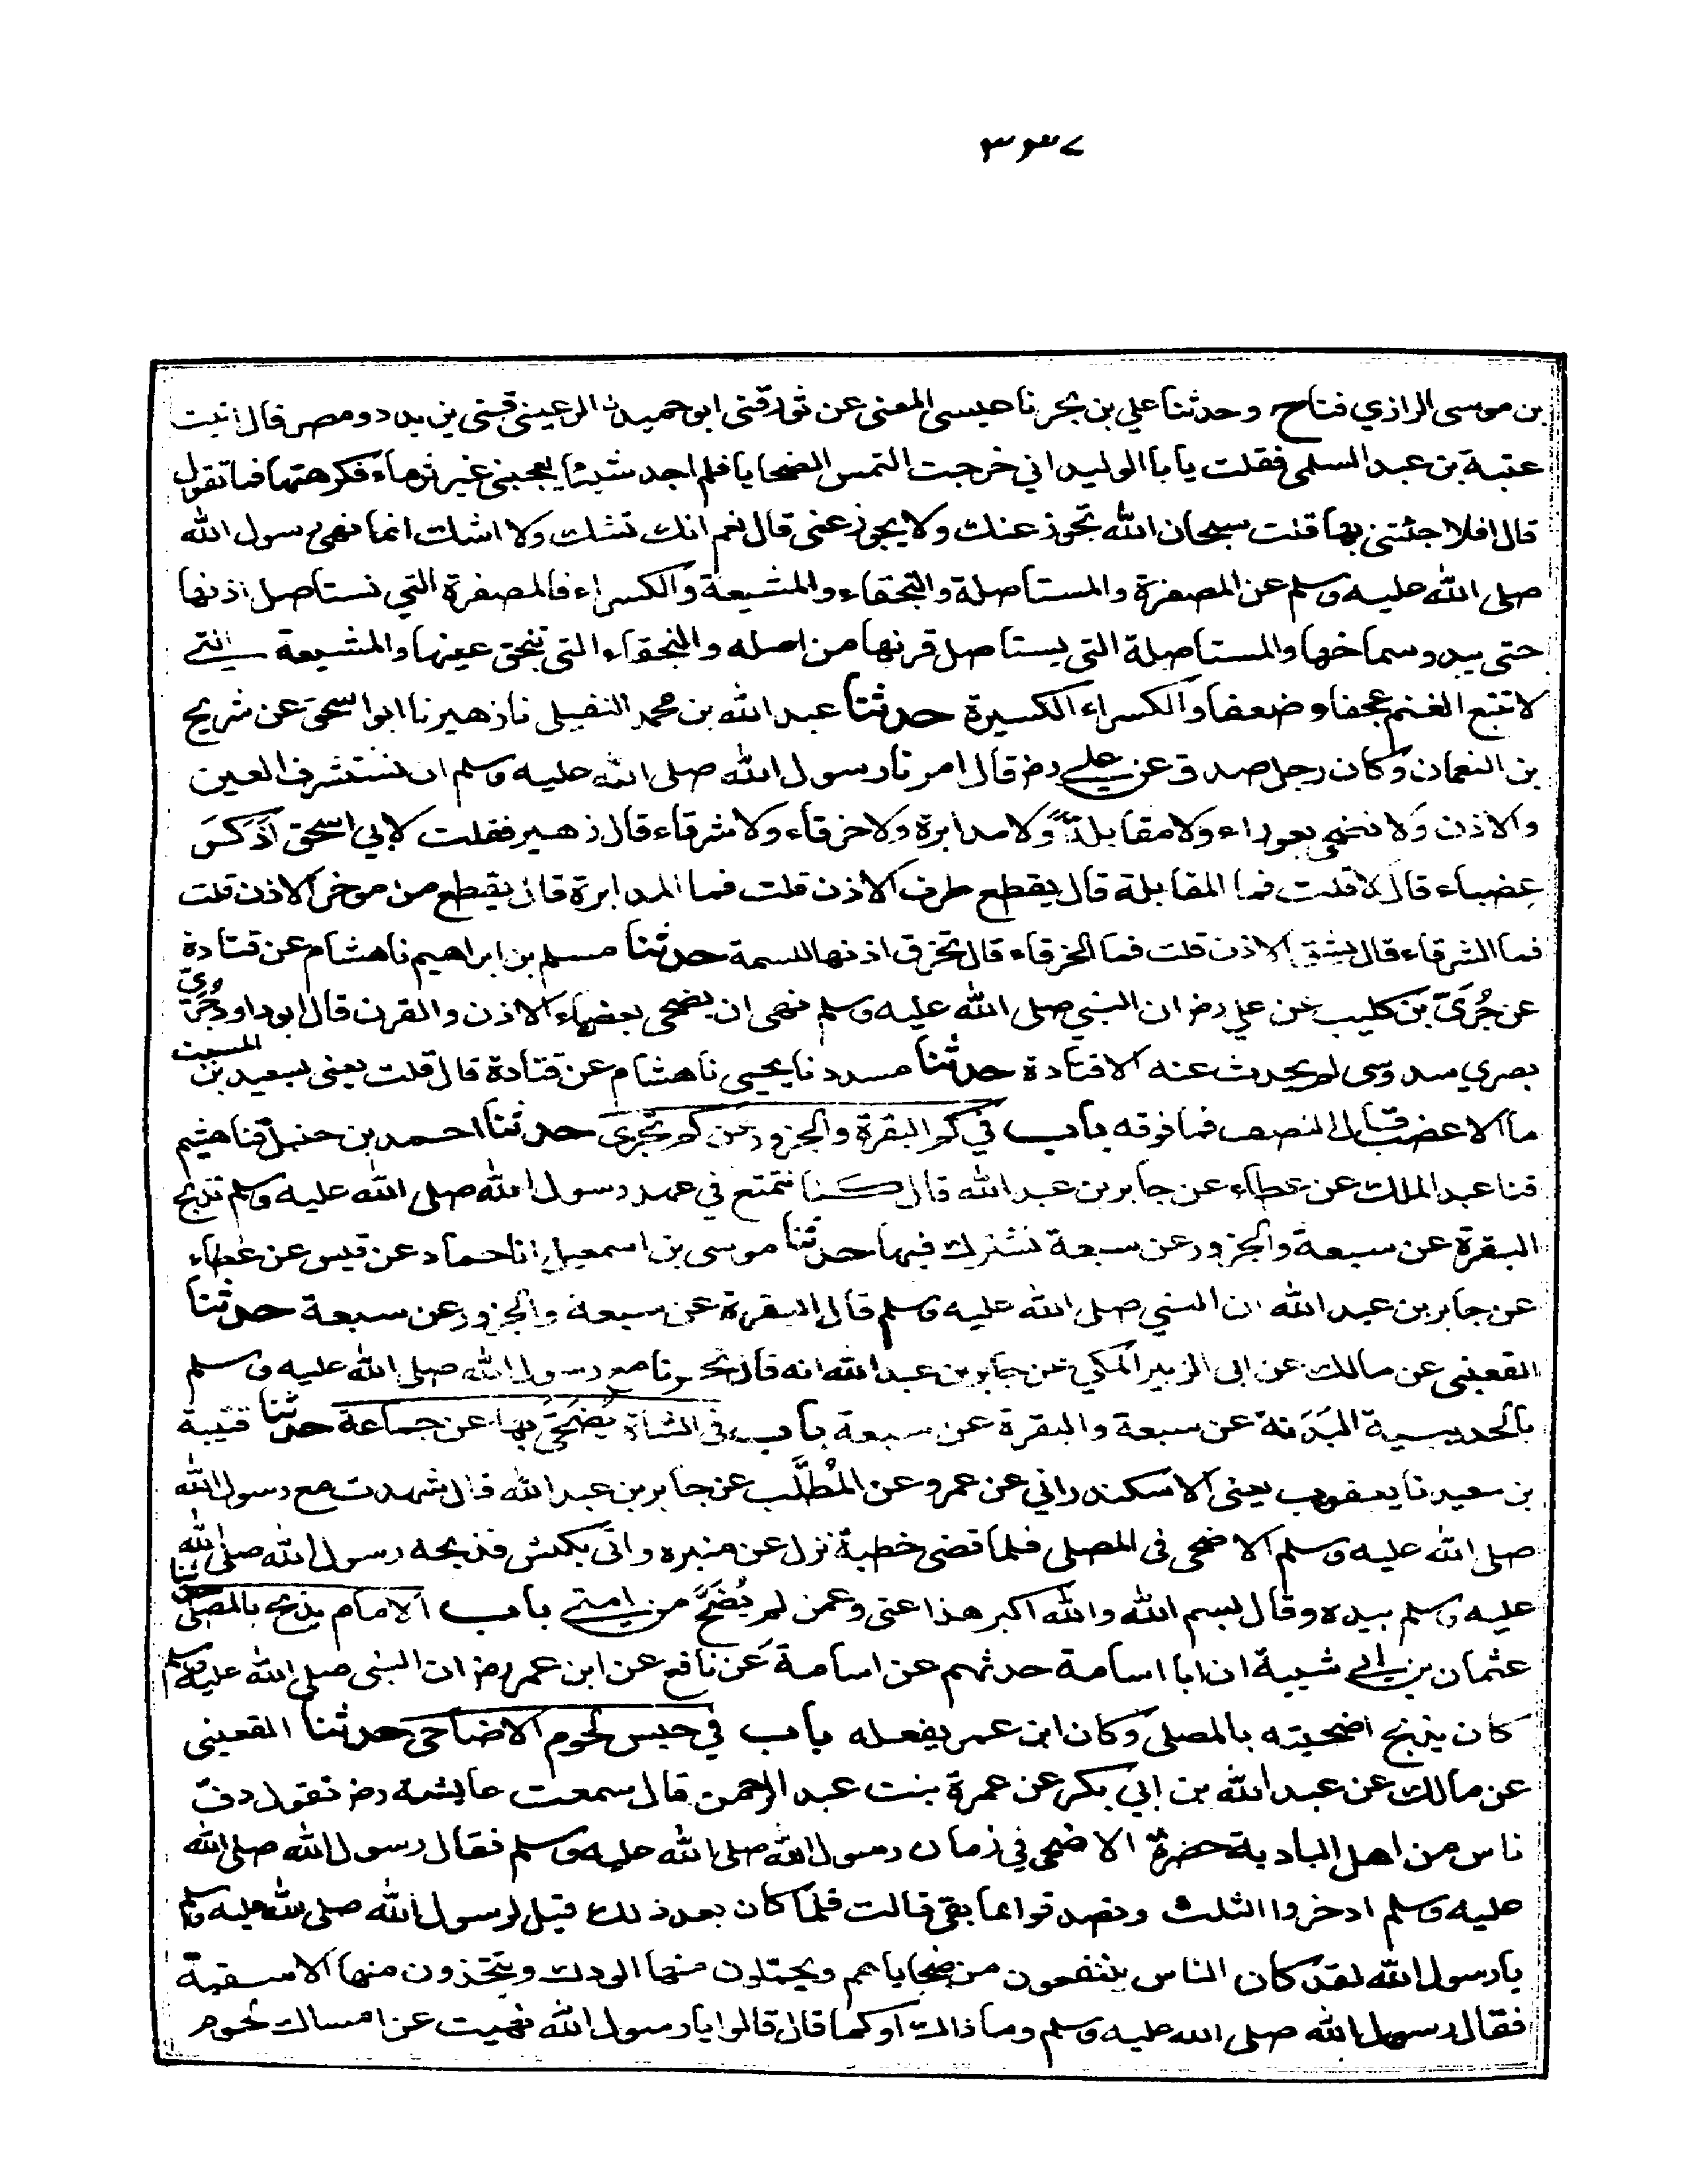 ٣٣٧
بن موسى الرازي قنا ح وحدثنا علي بن بحر نا عيسى المعنى عن ثور قثنى ابو حميد الرعيني قثنى يزيد ذو مصر قال اتيت
عتبة بن عبد السلمى فقلت يا با الوليد اني خرجت التمس الضحايا فلم اجد شيئا يعجبنى غير ثرماء فكرهتها فما تقول
قال افلا جئتنى بها قلت سبحان الله تجوز عنك ولا يجوز عنى قال نعم انك تشك ولا اشك انما نهى رسول الله
صلى الله عليه وسلم عن المصفرة والمستاصلة والبخقاء والمشيعة والكسراء فالمصفرة التي تستاصل اذنها
حتى يبدو سماخها والمستاصلة التى يستاصل قرنها من اصله والبخقاء التى تبخق عينها والمشيعة التى
لا تتبع الغنم عجفا وضعفا والكسراء الكسيرة حدثنا عبد الله بن محمد النفيلى نا زهير نا ابو اسحق عن شريح
بن النعمان وكان رجل صدق عن علي رضـ قال امرنا رسول الله صلى الله عليه وسلم ان نستشرف العين
والاذن ولا نضحى بعوراء ولا مقابلة ولا مدابرة ولا خرقاء ولا شرقاء قال زهير فقلت لابي اسحق اَذَكَرَ
عضباء قال لا قلت فما المقابلة قال يقطع طرف الاذن قلت فما المدابرة قال يقطع من موخر الاذن قلت
فما الشرقاء قال يشق الاذن قلت فما الخرقاء قال تخرق اذنها للسمة حدثنا مسلم بن ابراهيم نا هشام عن قتادة
عن جُرَىّ بن كليب عن علي رضـ ان النبي صلى الله عليه وسلم نهى ان يضحى بعضباء الاذن والقرن قال ابو داود جُرَىّ
بصري سدوسى لم يحدث عنه الا قتادة حدثنا مسدد نا يحيى نا هشام عن قتادة قال قلت يعنى لسعيد بن المسيب
ما الاعضب قال النصف فما فوقه باب في البقرة والجزور عن كم تجزى حدثنا احمد بن حنبل قنا هشيم
قنا عبد الملك عن عطاء عن جابر بن عبد الله قال كنا نتمتع في عهد رسول الله صلى الله عليه وسلم نذبح
البقرة عن سبعة والجزور عن سبعة نشترك فيها حدثنا موسى بن اسمعيل انا حماد عن قيس عن عطاء
عن جابر بن عبد الله ان النبي صلى الله عليه وسلم قال البقرة عن سبعة والجزور عن سبعة حدثنا
القعنبى عن مالك عن ابى الزبير المكي عن جابر بن عبد الله انه قال نحرنا مع رسول الله صلى الله عليه وسلم
بالحديبية البَدَنة عن سبعة والبقرة عن سبعة باب في الشاة يُضَحّىٰ بها عن جماعة حدثنا قتيبة
بن سعيد نا يعقوب يعنى الاسكندراني عن عمرو عن المُطَّلب عن جابر بن عبد الله قال شهدت مع رسول الله
صلى الله عليه وسلم الاضحى فى المصلى فلما قضى خطبة نزل عن منبره واتى بكبش فذبحه رسول الله صلى الله
عليه وسلم بيده وقال بسم الله والله اكبر هذا عنى وعمن لم يُضَحِّ من امتى باب الامام يذبح بالمصلى حدثنا
عثمان بن ابي شيبة ان ابا اسامة حدثهم عن اسامة عن نافع عن ابن عمر رضـ ان النبى صلى الله عليه وسلم
كان يذبح اضحيته بالمصلى وكان ابن عمر يفعله باب في حبس لحوم الاضاحى حدثنا القعنبى
عن مالك عن عبد الله بن ابي بكر عن عمرة بنت عبد الرحمن قال سمعت عايشة رضـ تقول دفّ
ناس من اهل البادية حضرة الاضحى في زمان رسول الله صلى الله عليه وسلم فقال رسول الله صلى الله
عليه وسلم ادخروا الثلث وتصدقوا بما بقى قالت فلما كان بعد ذلك قيل لرسول الله صلى الله عليه وسلم
يا رسول الله لقد كان الناس ينتفعون من ضحاياهم ويجملون منها الودك ويتخذون منها الاسقية
فقال رسول الله صلى الله عليه وسلم وما ذالك او كما قال قالوا يا رسول الله نهيت عن امساك لحوم